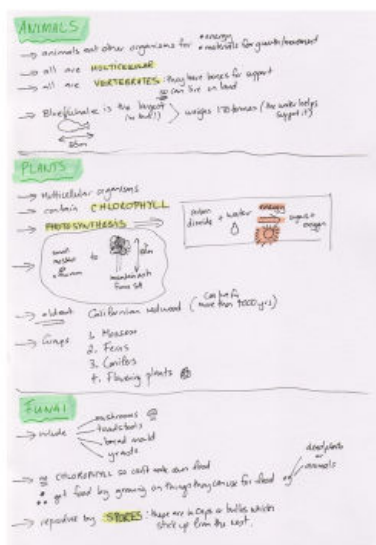 ANIMALS
→ animals eat other organisms for • energy
• materials for growth/movement
→ all are MULTICELLULAR
→ all are VERTEBRATES: they have bones for support
can live on land
→ Blue whale is the largest
weighs 170 tonnes (the water helps support it)
PLANTS
→ Multicellular organisms
→ contain CHLOROPHYLL
→ PHOTOSYNTHESIS
carbon dioxide + water energy sugars + oxygen
small mosses to
→ oldest Californian redwood (can live for more than 4000 yrs)
→ Groups 1. Mosses
2. Ferns
3. Conifers
4. Flowering plants
FUNGI
→ include mushrooms
toadstools
bread mould
yeasts
→ no CHLOROPHYLL so can't make own food
∴ get food by growing on things they can use for food
dead plants or animals
→ reproduce by SPORES: these are in caps or bulbs which
stick up from the rest.